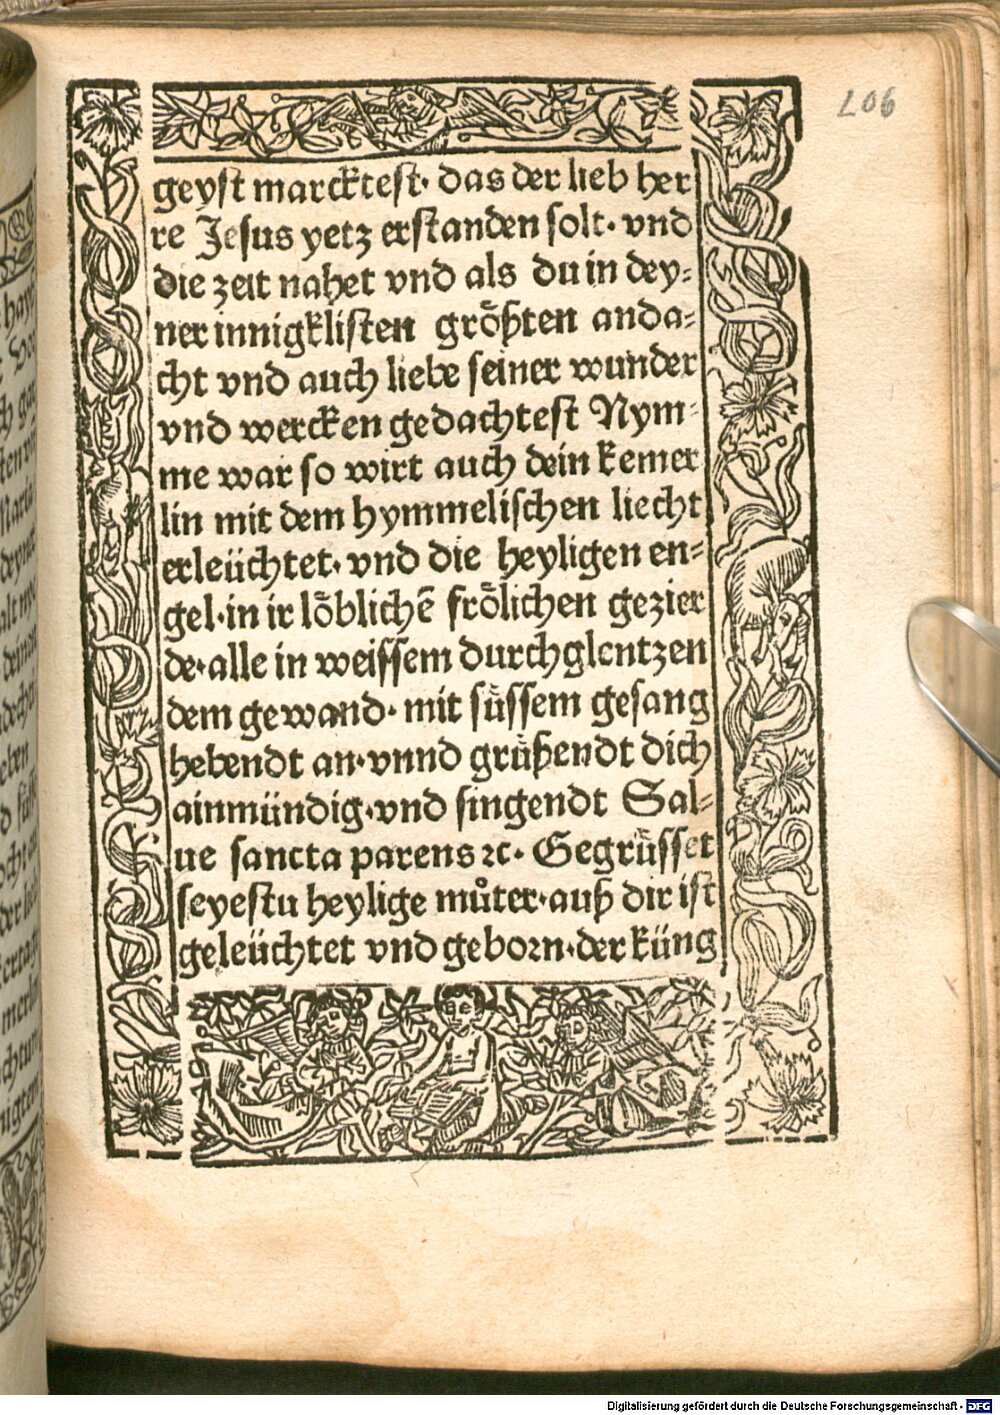 206
geyst marcktest· das der lieb her
re Jesus yetz erstanden solt· vnd
die zeit nahet vnd als du in dey⸗
ner innigklisten groͤßten anda⸗
cht vnd auch liebe seiner wunder
vnd wercken gedachtest Nym⸗
me war so wirt auch dein kemer
lin mit dem hymmelischen liecht
erleüchtet· vnd die heyligen en⸗
gel·in ir loͤblichē froͤlichen gezier
de·alle in weissem durchglentzen
dem gewand· mit suͤssem gesang
hebendt an·vnnd gruͤßendt dich
ainmündig·vnd singendt Sal⸗
ue sancta parens ꝛc· Gegruͤsset
seyestu heylige muͦter·auß dir ist
geleüchtet vnd geborn·der küng
Digitalisierung gefördert durch die Deutsche Forschungsgemeinschaft - DFG